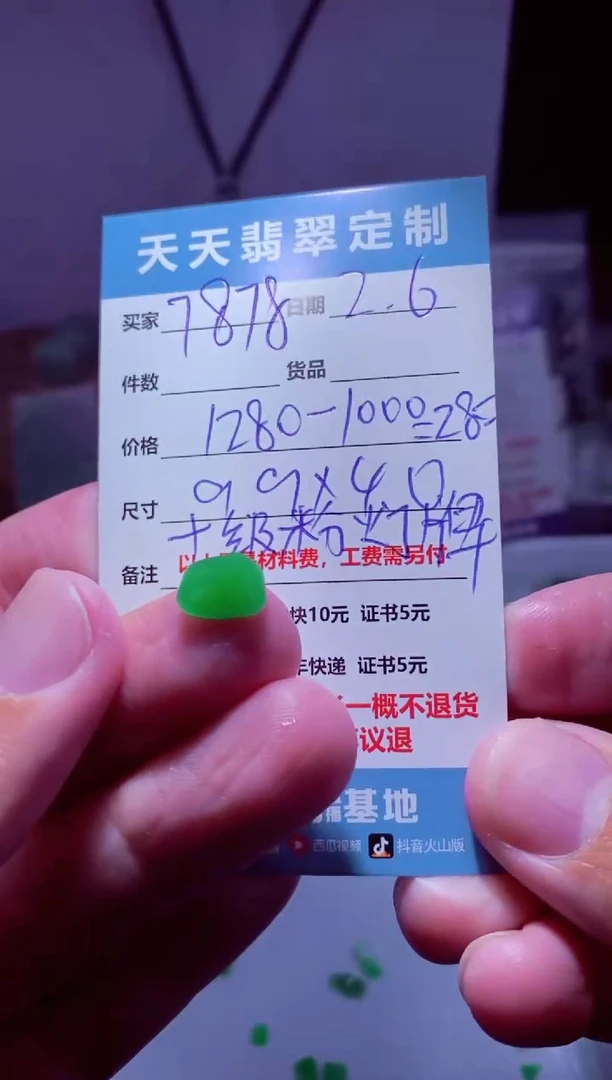 天天翡翠定制
买家 7878 日期 2.6
件数 货品
价格 1280-1000=28
尺寸 99×40
十级粉灯牌
备注 材料费，工费需另付
快10元 证书5元
快递 证书5元
一概不退货
议退
基地
西瓜视频 抖音火山版